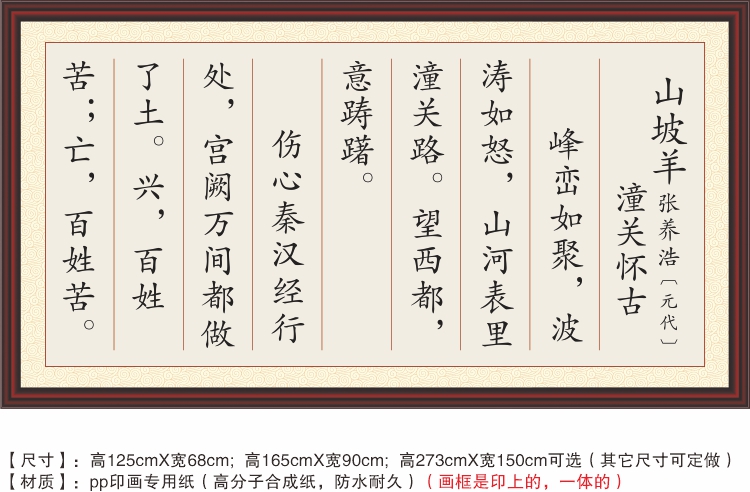 山坡羊 张养浩〔元代〕
潼关怀古
峰峦如聚，波
涛如怒，山河表里
潼关路。望西都，
意踌躇。
伤心秦汉经行
处，宫阙万间都做
了土。兴，百姓
苦；亡，百姓苦。
【尺寸】：高125cmX宽68cm; 高165cmX宽90cm; 高273cmX宽150cm可选（其它尺寸可定做）
【材质】：pp印画专用纸（高分子合成纸，防水耐久）（画框是印上的，一体的）